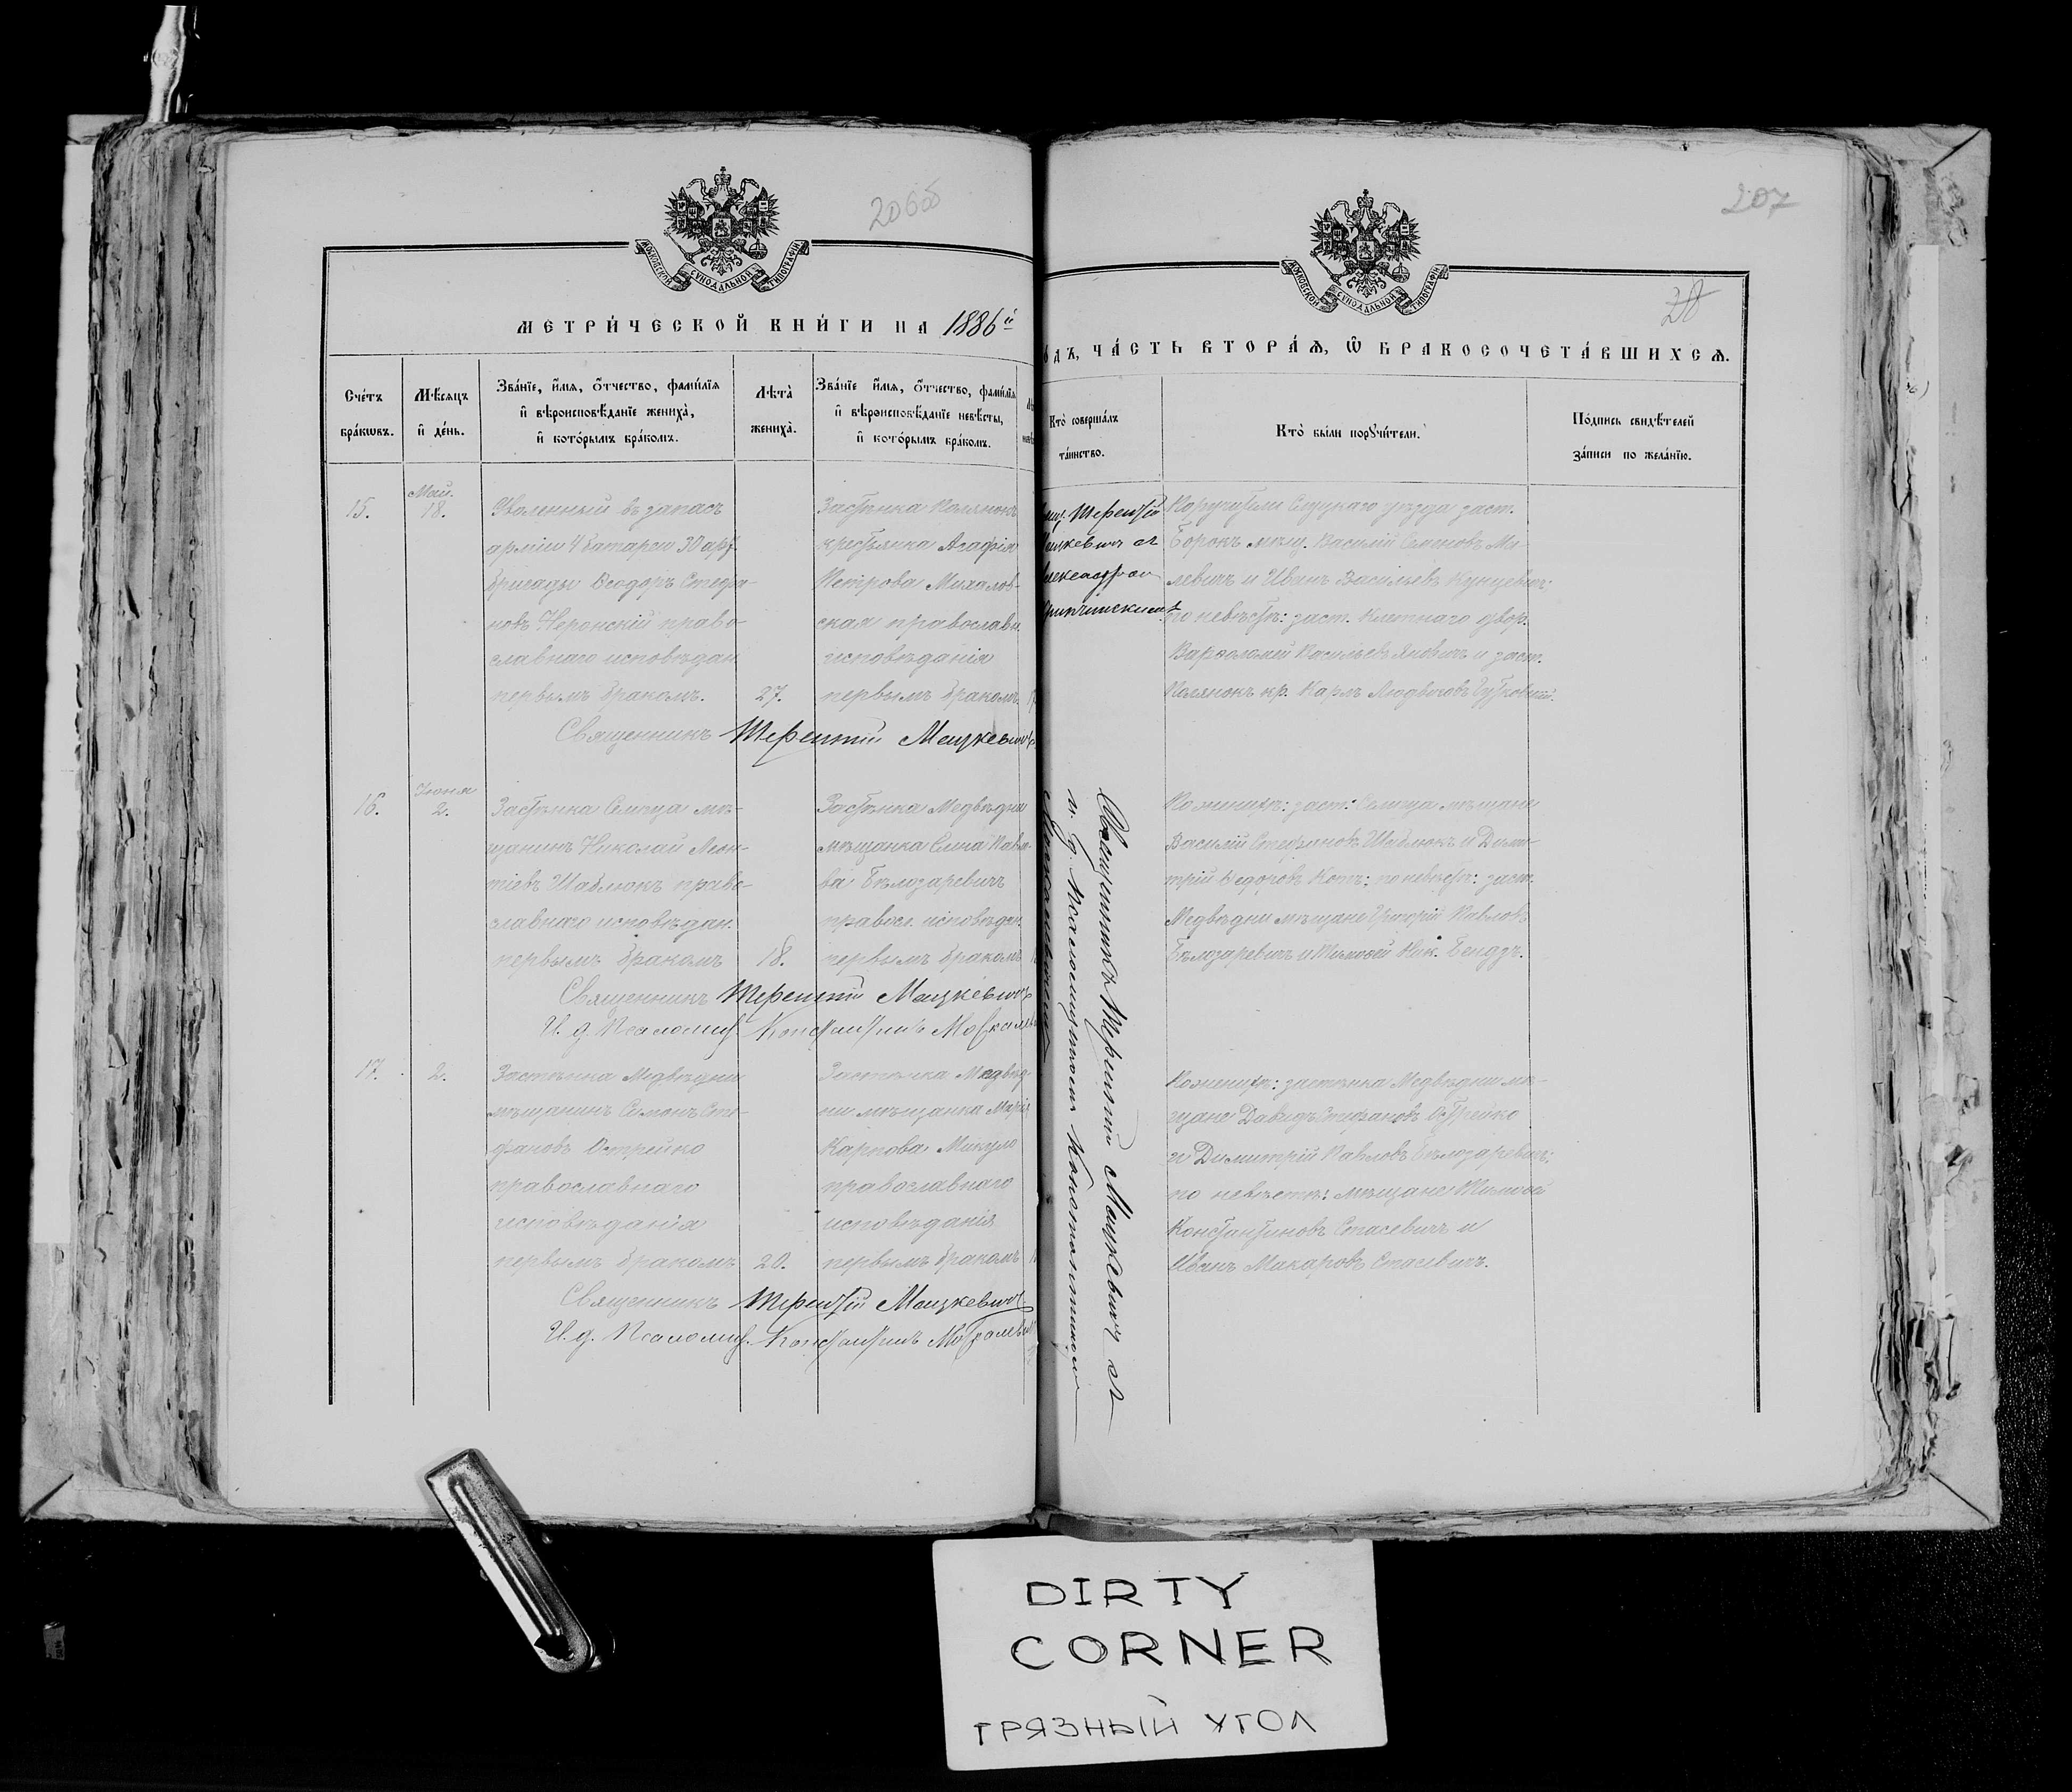 206об
207
28
МОСКОВСКОЙ СѴНОДАЛЬНОЙ ТИПОГРАФІИ
МОСКОВСКОЙ СѴНОДАЛЬНОЙ ТИПОГРАФІИ
МЕТРИ́ЧЕСКОЙ КНИ́ГИ НА 1886й
ОДЪ, ЧА́СТЬ ВТОРА́Ѧ, Ѿ БРАКОСОЧЕТА́ВШИХСѦ.
Сче́тъ бра́кѡвъ.
Мѣ́сяцъ и де́нь.
Зва́нїе, и́мѧ, ѻ҆́тчество, фами́лїѧ
и҆ вѣроисповѣ́данїе жениха̀,
и҆ кото́рымъ бра́комъ.
Лѣта̀ жениха̀.
Зва́нїе и́мѧ, ѻ҆́тчество, фами́лїѧ
и҆ вѣроисповѣ́данїе невѣ́сты,
и҆ кото́рымъ бра́комъ.
Кто̀ соверша́лъ
та́инство.
Кто̀ бы́ли порꙋчи́тели.
По́дпись свидѣ́телей
за́писи по жела́нїю.
15.
Май.
18.
Уволенный въ запасъ
арміи 4 батареи 30 арт.
бригады Ѳеодоръ Стефа-
новъ Неронскій право-
славнаго исповѣдан.
первымъ бракомъ.
27.
Застѣнка Полянокъ
крестьянка Агафія
Петрова Михалов-
ская православн.
исповѣданія
первымъ бракомъ.
Терентій
Мацкевичъ съ
Поручители Слуцкаго уѣзда заст.
Борокъ мѣщ. Василій Семеновъ Ма-
левичъ и Иванъ Васильевъ Кунцевичъ:
по невѣстѣ: заст. Клетнаго двор.
Варѳоломей Васильевъ Яновичъ и заст.
Полянокъ кр. Карлъ Людвиговъ
Священникъ Терентій Мацкевичъ
16.
Іюня
2.
Застѣнка Селища мѣ-
щанинъ Николай Леон-
тіевъ Шаблюкъ право-
славнаго исповѣдан.
первымъ бракомъ
18.
Застѣнка Медвѣдни
мѣщанка Елена Павло-
ва Бѣлозаревичъ
правосл. исповѣдан.
первымъ бракомъ
По женихѣ: заст. Селища мѣщане
Василій Стефановъ Шаблюкъ и Дими-
трій Ѳедоровъ Котъ: по невѣстѣ: заст.
Медвѣдни мѣщане Григорій Павловъ
Бѣлозаревичъ и Тимоѳей Ник. Бендзъ.
Священникъ Терентій Мацкевичъ
И. д. Псаломщ. Константинъ
17.
2.
Застѣнка Медвѣдни
мѣщанинъ Симонъ Сте-
фановъ Острейко
православнаго
исповѣданія
первымъ бракомъ
20.
Застѣнка Медвѣд-
ни мѣщанка Марія
Карпова Микуло
православнаго
исповѣданія
первымъ бракомъ
По женихѣ: застѣнка Медвѣдни мѣ-
щане Давидъ Стефановъ Острейко
и Димитрій Павловъ Бѣлозаревичъ:
по невѣстѣ: мѣщане Тимоѳей
Константиновъ Стасевичъ и
Иванъ Макаровъ Стасевичъ.
Священникъ Терентій Мацкевичъ
И. д. Псаломщ. Константинъ
Священникъ Терентій Мацкевичъ съ
и. д. Псаломщикомъ Константиномъ
DIRTY
CORNER
ГРЯЗНЫЙ УГОЛ